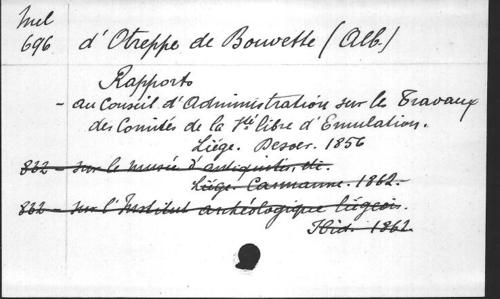 Mel
696
d'Otreppe de Bouvette (Alb.)
Rapports
- au Conseil d'Administration sur les Travaux
des Comités de la Sté libre d'Emulation.
Liége. Desoer. 1856
832 - sur le musée d'antiquités, etc.
Liége. Carmanne. 1862.
832 - sur l'Institut archéologique liégeois.
Ibid. 1862.